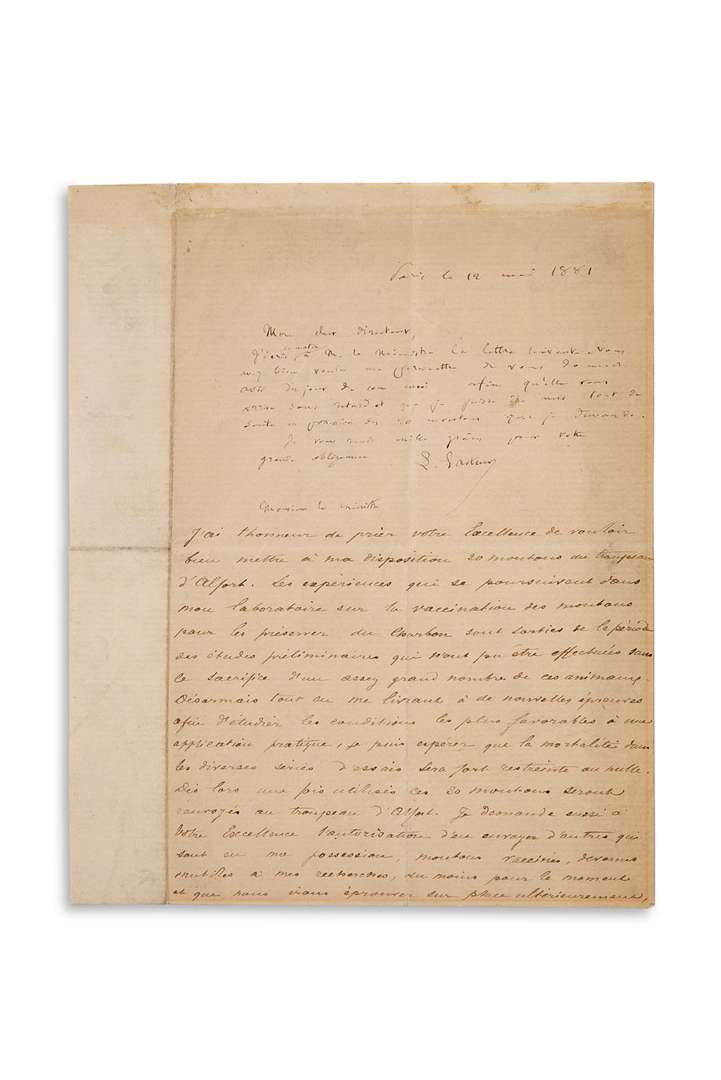 Paris le 12 mai 1881
Mon cher directeur,
ce matin
J'écris à M. le Ministre la lettre suivante. Vous
bien me permettre de vous donner
avis du jour de son envoi afin qu'elle vous
arrive sans retard et que je puisse être mis tout de
suite en possession des 20 moutons que je demande.
Je vous rends mille grâces pour votre
grande obligeance
L. Pasteur
Monsieur le Ministre
J'ai l'honneur de prier votre Excellence de vouloir
bien mettre à ma disposition 20 moutons du troupeau
d'Alfort. Les expériences qui se poursuivent dans
mon laboratoire sur la vaccination des moutons
pour les préserver du Charbon sont sorties de la période
des études préliminaires qui n'ont pu être effectuées sans
le sacrifice d'un assez grand nombre de ces animaux.
Désormais tout en me livrant à de nouvelles épreuves
afin d'étudier les conditions les plus favorables à une
application pratique, je puis espérer que la mortalité dans
les diverses séries d'essais sera fort restreinte ou nulle.
Dès lors une fois utilisés ces 20 moutons seront
renvoyés au troupeau d'Alfort. Je demande aussi à
Votre Excellence l'autorisation d'en envoyer d'autres qui
sont en ma possession, moutons vaccinés, devenus
inutiles à mes recherches, du moins pour le moment
et que nous irons éprouver sur place ultérieurement,